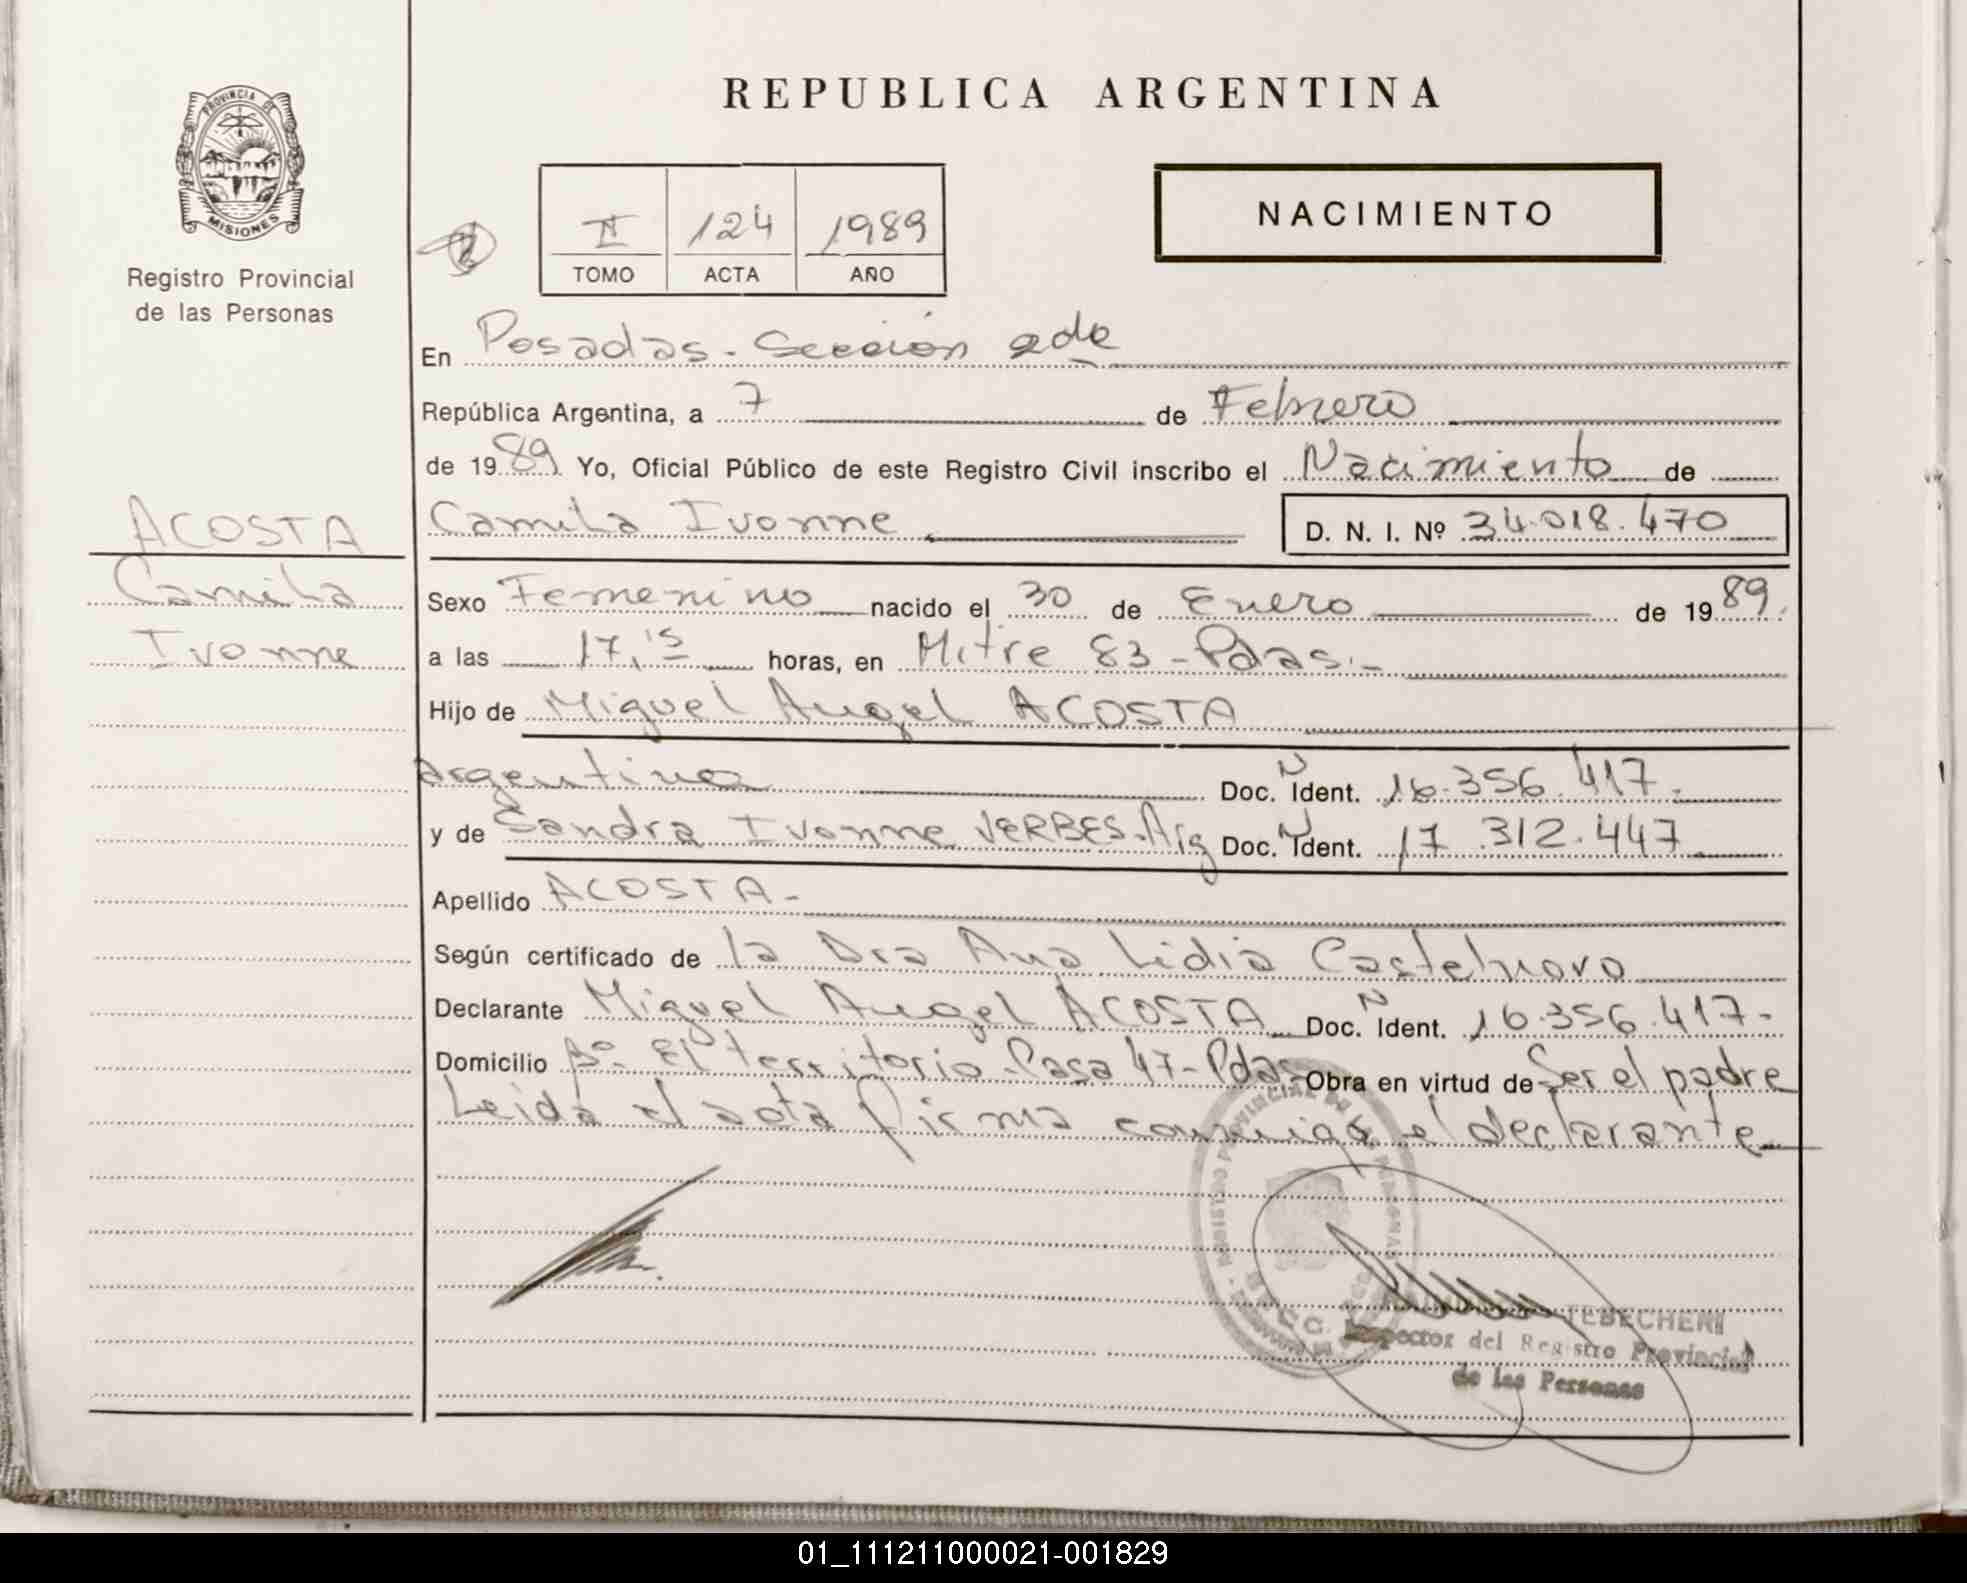 PROVINCIA DE
MISIONES
Registro Provincial
de las Personas
REPUBLICA ARGENTINA
II 124 1989
TOMO ACTA AÑO
NACIMIENTO
En Posadas - Sección 2da
República Argentina, a 7 de Febrero
de 1989. Yo, Oficial Público de este Registro Civil inscribo el Nacimiento de
Camila Ivonne D. N. I. Nº 34.018.470
ACOSTA
Camila
Ivonne
Sexo Femenino nacido el 30 de Enero de 1989.
a las 17,15 horas, en Mitre 83 - Pdas.-
Hijo de Miguel Angel ACOSTA
argentino Doc. N Ident. 16.356.417.-
y de Sandra Ivonne VERBES - Arg Doc. N Ident. 17.312.447
Apellido ACOSTA -
Según certificado de la Dra Ana Lidia Castelnovo
Declarante Miguel Angel ACOSTA Doc. N Ident. 16.356.417-
Domicilio Bº. El territorio - Casa 47 - Pdas - Obra en virtud de Ser el padre
Leida el acta firma conmigo el declarante
TEBECHERI
Inspector del Registro Provincial
de las Personas
01_111211000021-001829